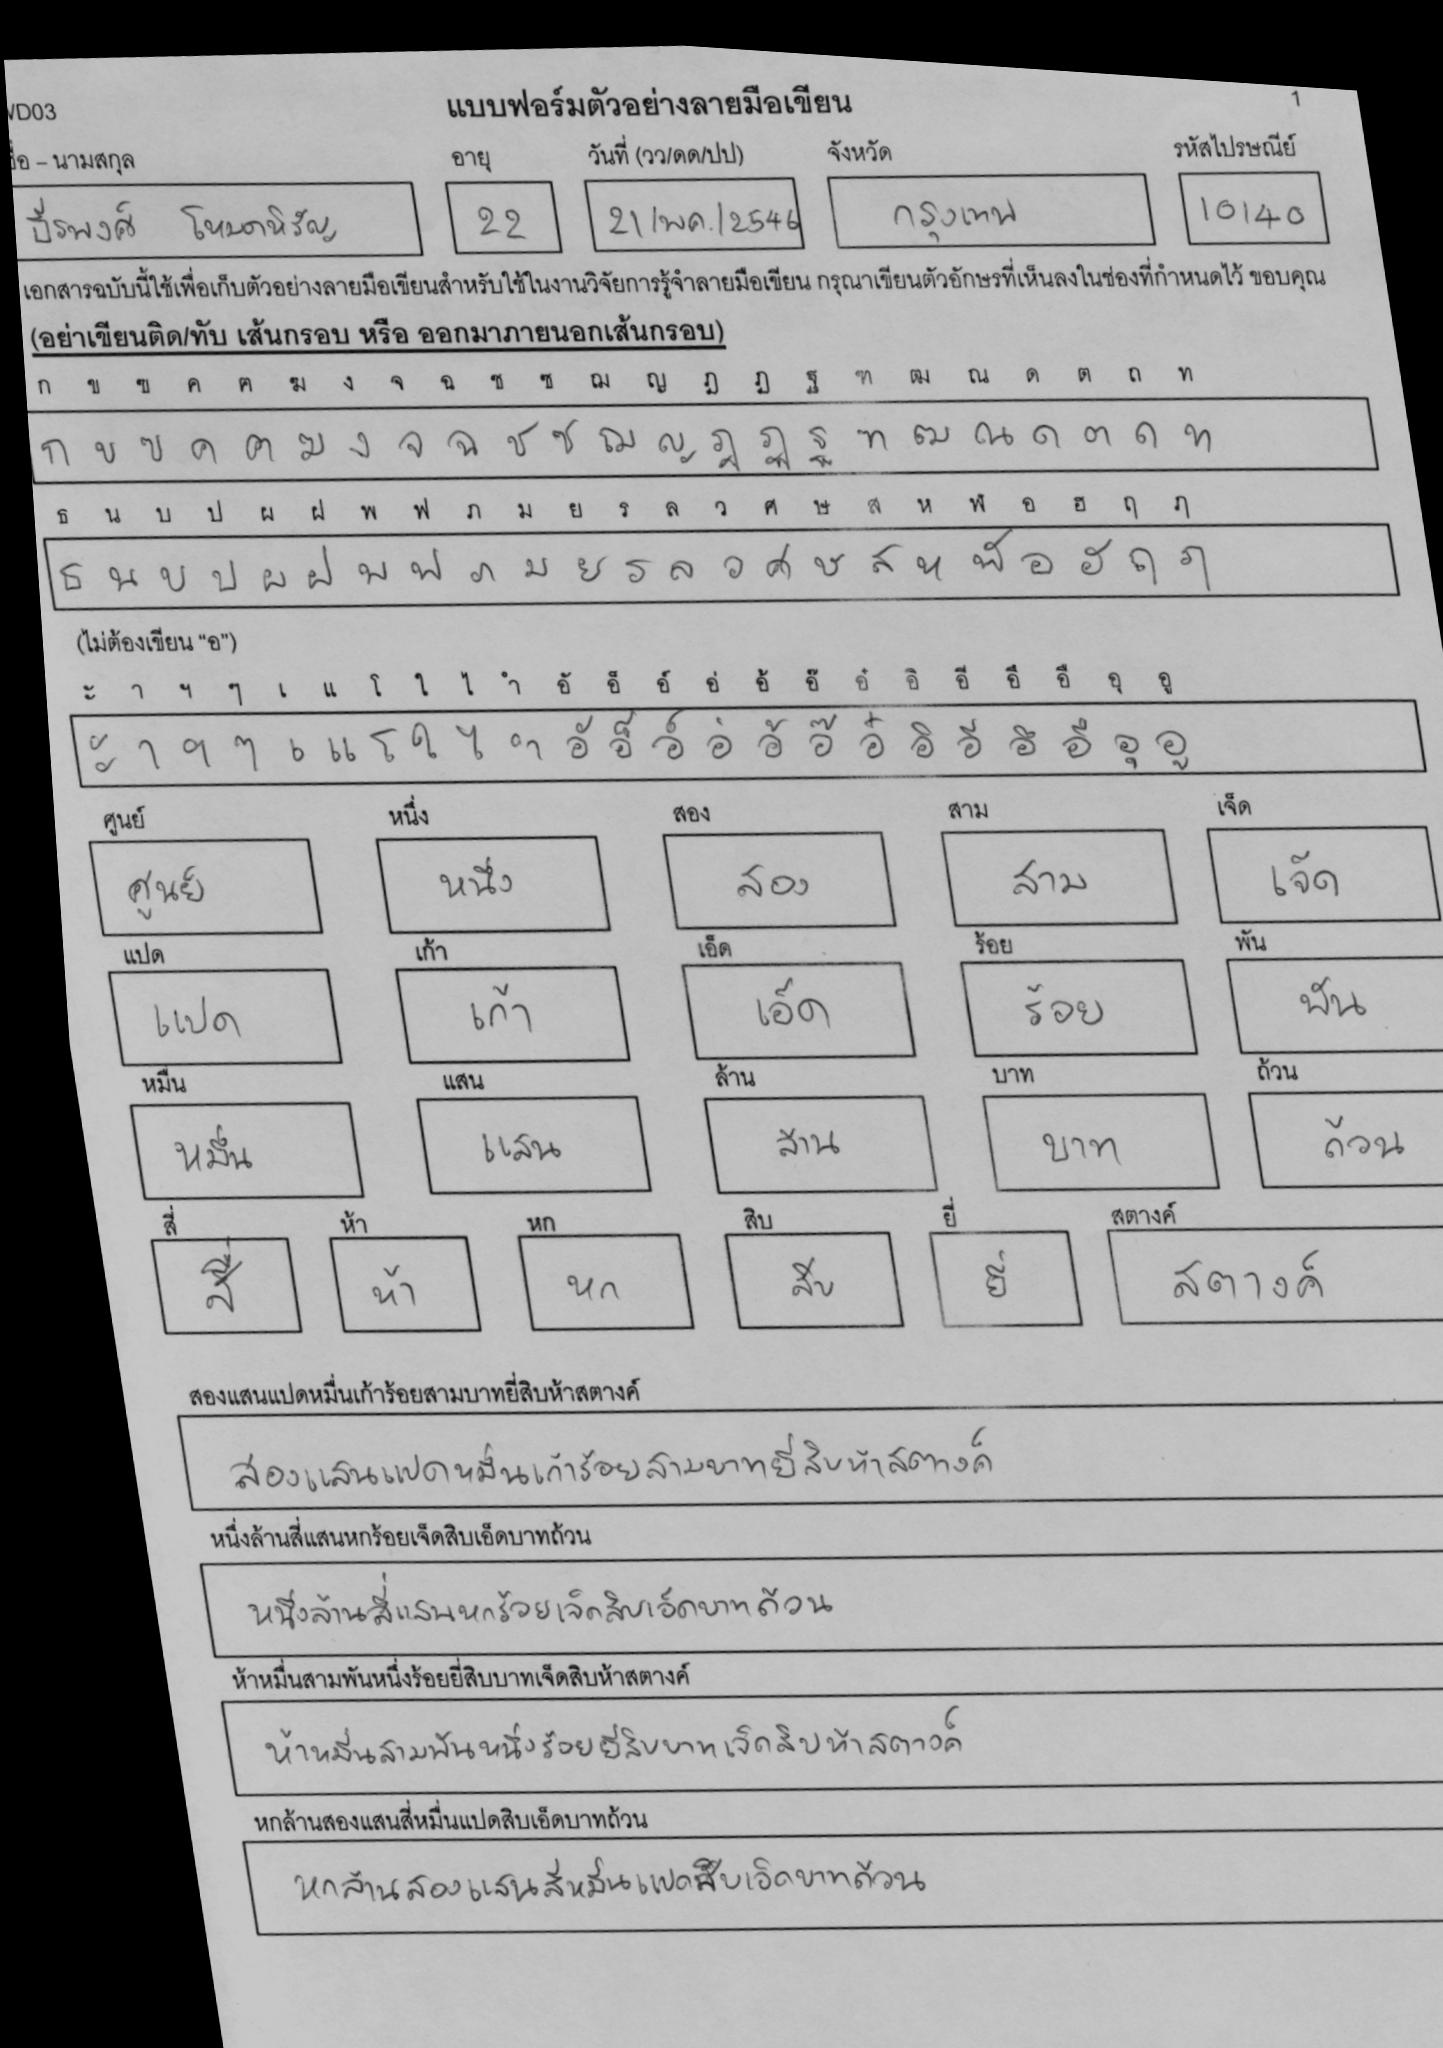 VD03 แบบฟอร์มตัวอย่างลายมือเขียน 1
ชื่อ – นามสกุล อายุ วันที่ (วว/ดด/ปป) จังหวัด รหัสไปรษณีย์
22 21/พค./2546 กรุงเทพ 10140
เอกสารฉบับนี้ใช้เพื่อเก็บตัวอย่างลายมือเขียนสำหรับใช้ในงานวิจัยการรู้จำลายมือเขียน กรุณาเขียนตัวอักษรที่เห็นลงในช่องที่กำหนดไว้ ขอบคุณ
(อย่าเขียนติด/ทับ เส้นกรอบ หรือ ออกมาภายนอกเส้นกรอบ)
ก ข ฃ ค ฅ ฆ ง จ ฉ ช ซ ฌ ญ ฎ ฏ ฐ ฑ ฒ ณ ด ต ถ ท
ก ข ฃ ค ฅ ฆ ง จ ฉ ช ซ ฌ ญ ฎ ฏ ฐ ฑ ฒ ณ ด ต ถ ท
ธ น บ ป ผ ฝ พ ฟ ภ ม ย ร ล ว ศ ษ ส ห ฬ อ ฮ ฤ ฦ
ธ น บ ป ผ ฝ พ ฟ ภ ม ย ร ล ว ศ ษ ส ห ฬ อ ฮ ฤ ฦ
(ไม่ต้องเขียน “อ”)
ะ า ฯ ๆ เ แ โ ใ ไ ำ อั อ็ อ์ อ่ อ้ อ๊ อ๋ อิ อี อึ อื อุ อู
ะ า ฯ ๆ เ แ โ ใ ไ ำ อั อ็ อ์ อ่ อ้ อ๊ อ๋ อิ อี อึ อื อุ อู
ศูนย์ หนึ่ง สอง สาม เจ็ด
ศูนย์ หนึ่ง สอง สาม เจ็ด
แปด เก้า เอ็ด ร้อย พัน
แปด เก้า เอ็ด ร้อย พัน
หมื่น แสน ล้าน บาท ถ้วน
หมื่น แสน ล้าน บาท ถ้วน
สี่ ห้า หก สิบ ยี่ สตางค์
สี่ ห้า หก สิบ ยี่ สตางค์
สองแสนแปดหมื่นเก้าร้อยสามบาทยี่สิบห้าสตางค์
สองแสนแปดหมื่นเก้าร้อยสามบาทยี่สิบห้าสตางค์
หนึ่งล้านสี่แสนหกร้อยเจ็ดสิบเอ็ดบาทถ้วน
หนึ่งล้านสี่แสนหกร้อยเจ็ดสิบเอ็ดบาทถ้วน
ห้าหมื่นสามพันหนึ่งร้อยยี่สิบบาทเจ็ดสิบห้าสตางค์
ห้าหมื่นสามพันหนึ่งร้อยยี่สิบบาทเจ็ดสิบห้าสตางค์
หกล้านสองแสนสี่หมื่นแปดสิบเอ็ดบาทถ้วน
หกล้านสองแสนสี่หมื่นแปดสิบเอ็ดบาทถ้วน